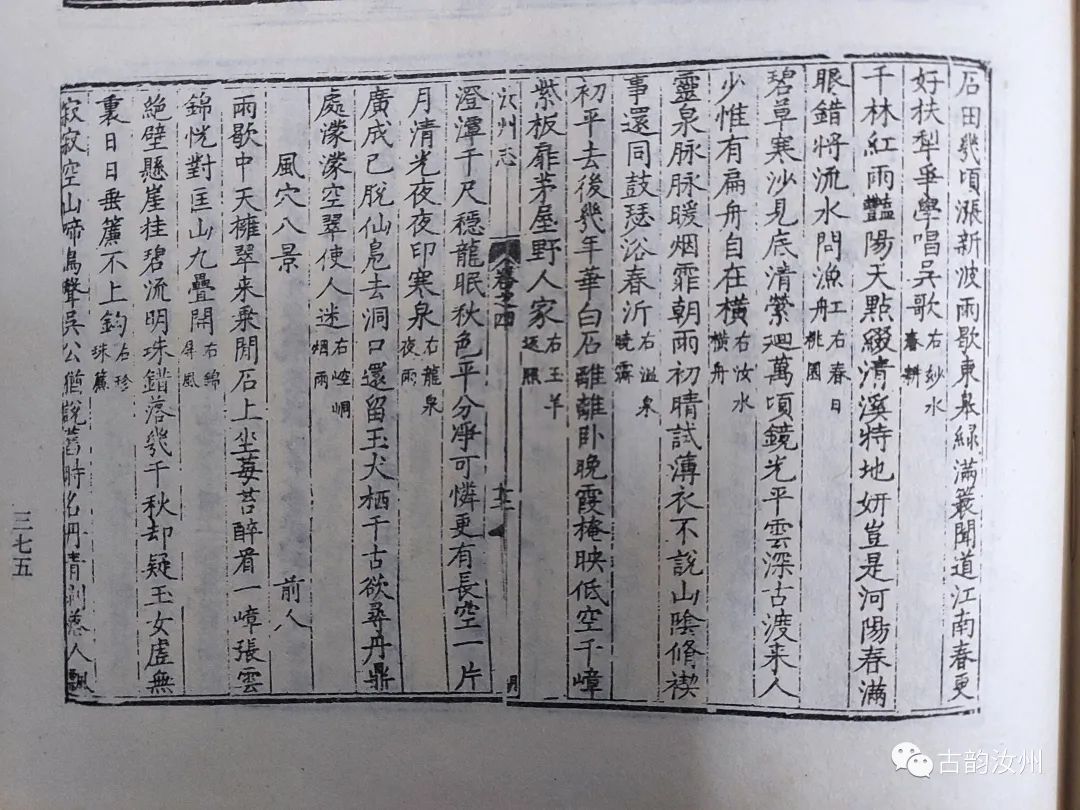 石田幾頃漲新波雨歇東皋綠滿蓑聞道江南春更
好扶犁畢學唱吳歌右妙水春耕
千林紅雨豔陽天點綴清溪特地妍豈是河陽春滿
眼錯將流水問漁舟右春日紅桃園
碧草寒沙見底清縈迴萬頃鏡光平雲深古渡来人
少惟有扁舟自在橫右汝水橫舟
靈泉脉脉暖烟霏朝雨初晴試薄衣不說山陰脩禊
事還同鼓瑟浴春沂右溫泉曉霽
初平去後幾年華白石離離卧晚霞掩映低空千嶂
紫板扉茅屋野人家右玉羊返照
汝州志 卷之四
澄潭千尺穩龍眠秋色平分凈可憐更有長空一片
月清光夜夜印寒泉右龍泉夜雨
廣成已脱仙凫去洞口還留玉犬栖千古欲尋丹鼎
處濛濛空翠使人迷右崆峒烟雨
風穴八景 前人
雨歇中天擁翠来乘閒石上坐莓苔醉看一嶂張雲
錦恍對匡山九疊開右錦屏風
絶壁懸崖挂碧流明珠錯落幾千秋却疑玉女虛無
裏日日垂簾不上鈎右珍珠簾
寂寂空山啼鳥聲吳公猶說舊時名丹青 人
三七五
古韵汝州